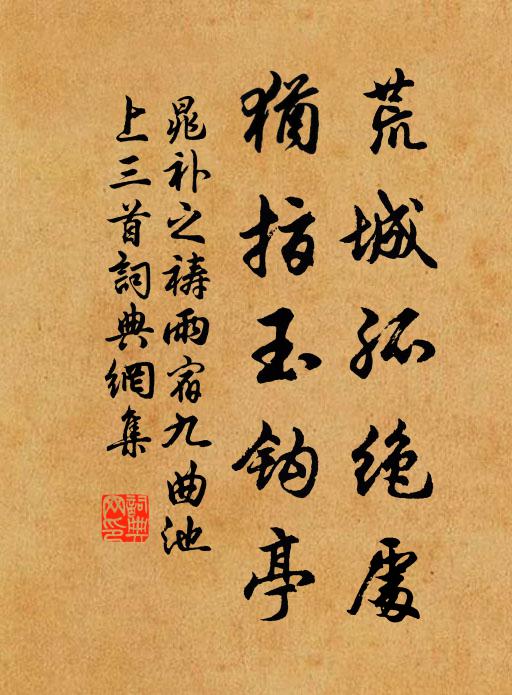 荒城孤絶處
猶指玉鈎亭
晁补之禱雨宿九曲池
上三首詞典網集
詞典
网印